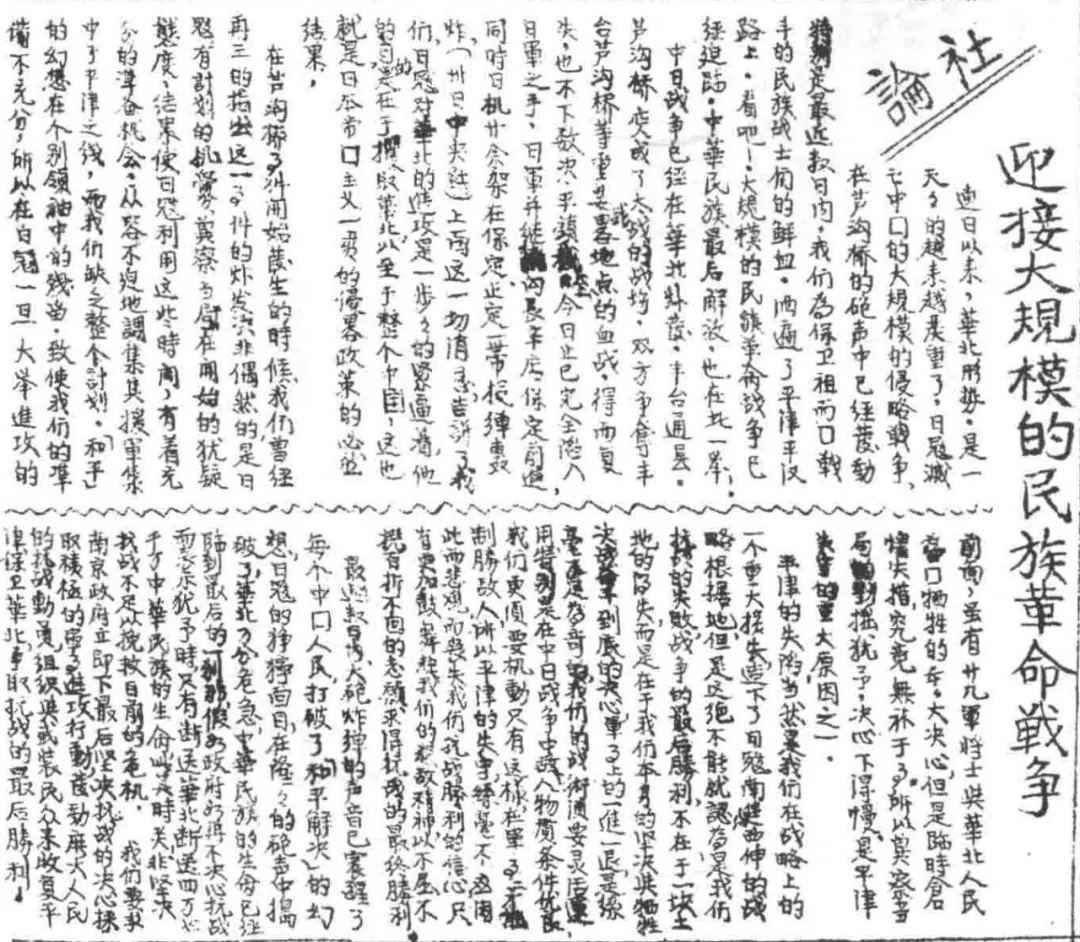 社論
迎接大規模的民族革命战争
連日以来,華北形势,是一
天々的越来越嚴重了,日冠滅
亡中口的大規模的侵略战争,
在芦沟桥的砲声中已經發動
特别是最近数日内,我们為保卫祖而口战
斗的民族战士们的鲜血,洒遍了平津平汉
路上,看吧!大規模的民族革命战争已
經迫臨,中華民族最后解放,也在此一举,
中日战争已經在華北外發,丰台通县,
芦沟桥变成了大战的战场,双方争奪丰
台芦沟桥等重要畧地点的血战,得而复
失,也不下数次,平頭今日止已完全陷入
日軍之手,日軍并继長辛店,保定前進
同時日机廿余架在保定正定一带掟弹轰
炸,(卅日中央社)上面这一切消息告訴了我
们,日冠对華北的進攻是一步々的緊逼着,他
的目的是在于攫取華北以至于整个中国,这也
就是日本帝口主义一贯的侵畧政策的必然
結果,
在芦沟桥事件開始發生的時候,我们曾經
再三的指出这一事件的炸发決非偶然的是日
冠有計划的挑釁,冀察当局在開始的犹疑
態度,结果使日冠利用这些時间,有着充
分的準备机会,从容不迫地調集其援軍集
中了平津之线,而我们缺乏整个計划,「和平」
的幻想在个别領袖中的残留,致使我们的準
備不充分,所以在日冠一旦大举進攻的
前面,虽有廿九軍將士與華北人民
奮口牺牲的大决心,但是臨時倉
惶失措,究竟無补于事,所以冀察当
局的動摇犹予,决心下得慢,是平津
失守的重大原因之一,
平津的失陷,当然是我们在战略上的
一个重大損失,造下了日冠南進西伸的战
略根据地,但是这绝不能就認為是我们
抗战的失敗,战争的最后勝利,不在于一块土
地的得失,而是在于我们本身的坚决與牺牲
决战争到底的决心,軍事上的一進一退是
毫不足為奇的,我们的战術須要灵活運
用特别是在中日战争中敵人物質条件优
我们更須要机動只有这样在軍事上才能
制勝敌人,所以平津的失守,絲毫不应因
此而悲观而丧失我们抗战勝利的信心,只
有更加鼓舞起我们的殺敌精神以不屈不
撓百折不回的志愿求得抗战的最終勝利
最近数日来,大砲炸弹的声音已震醒了
每个中口人民,打破了「和平解决」的幻
想,日冠的狰獰面目,在隆々的砲声中揭
破了,華北万分危急,中華民族的生命已經
臨到最后的一刹那,假如政府仍得不决心抗战
而表示犹予時,只有断送華北断送四万万
千万中華民族的生命,此時失非坚决
抗战不足以挽救目前的危机, 我们要求
南京政府立即下最后坚决抗战的决心,採
取積極的軍事進攻行動,發動廣大人民
的抗战動員,組织與武装民众来收复平
津保卫華北,争取抗战的最后勝利!